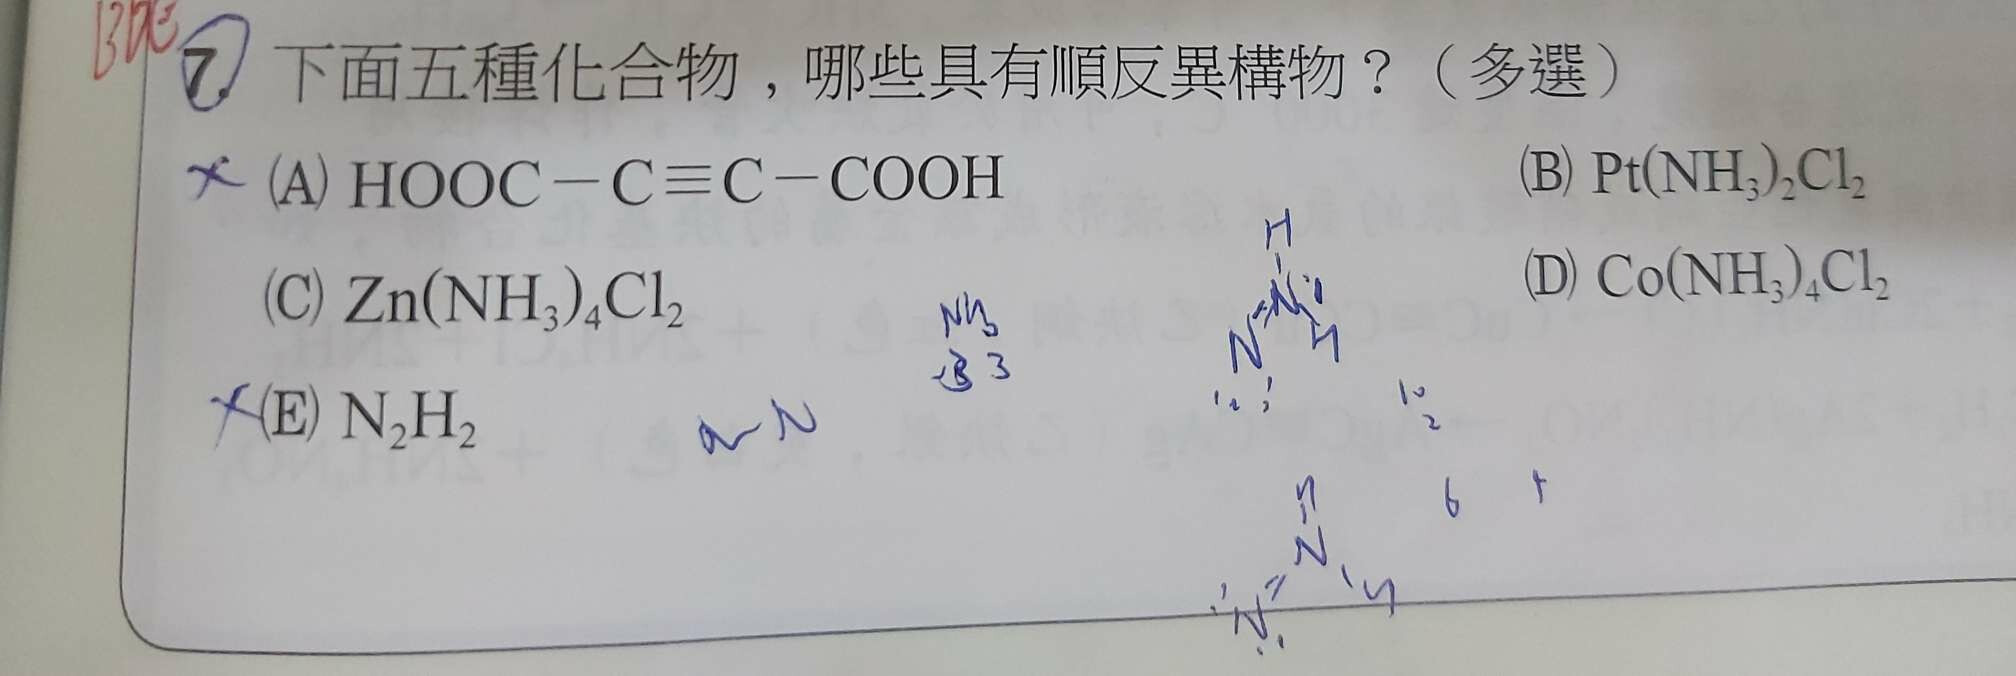 BDE
7. 下面五種化合物，哪些具有順反異構物？（多選）
(A) HOOC－C≡C－COOH
(B) Pt(NH₃)₂Cl₂
(C) Zn(NH₃)₄Cl₂
(D) Co(NH₃)₄Cl₂
(E) N₂H₂
H
N
N
H
NH₃
3
10
2
N
6
N
H
N